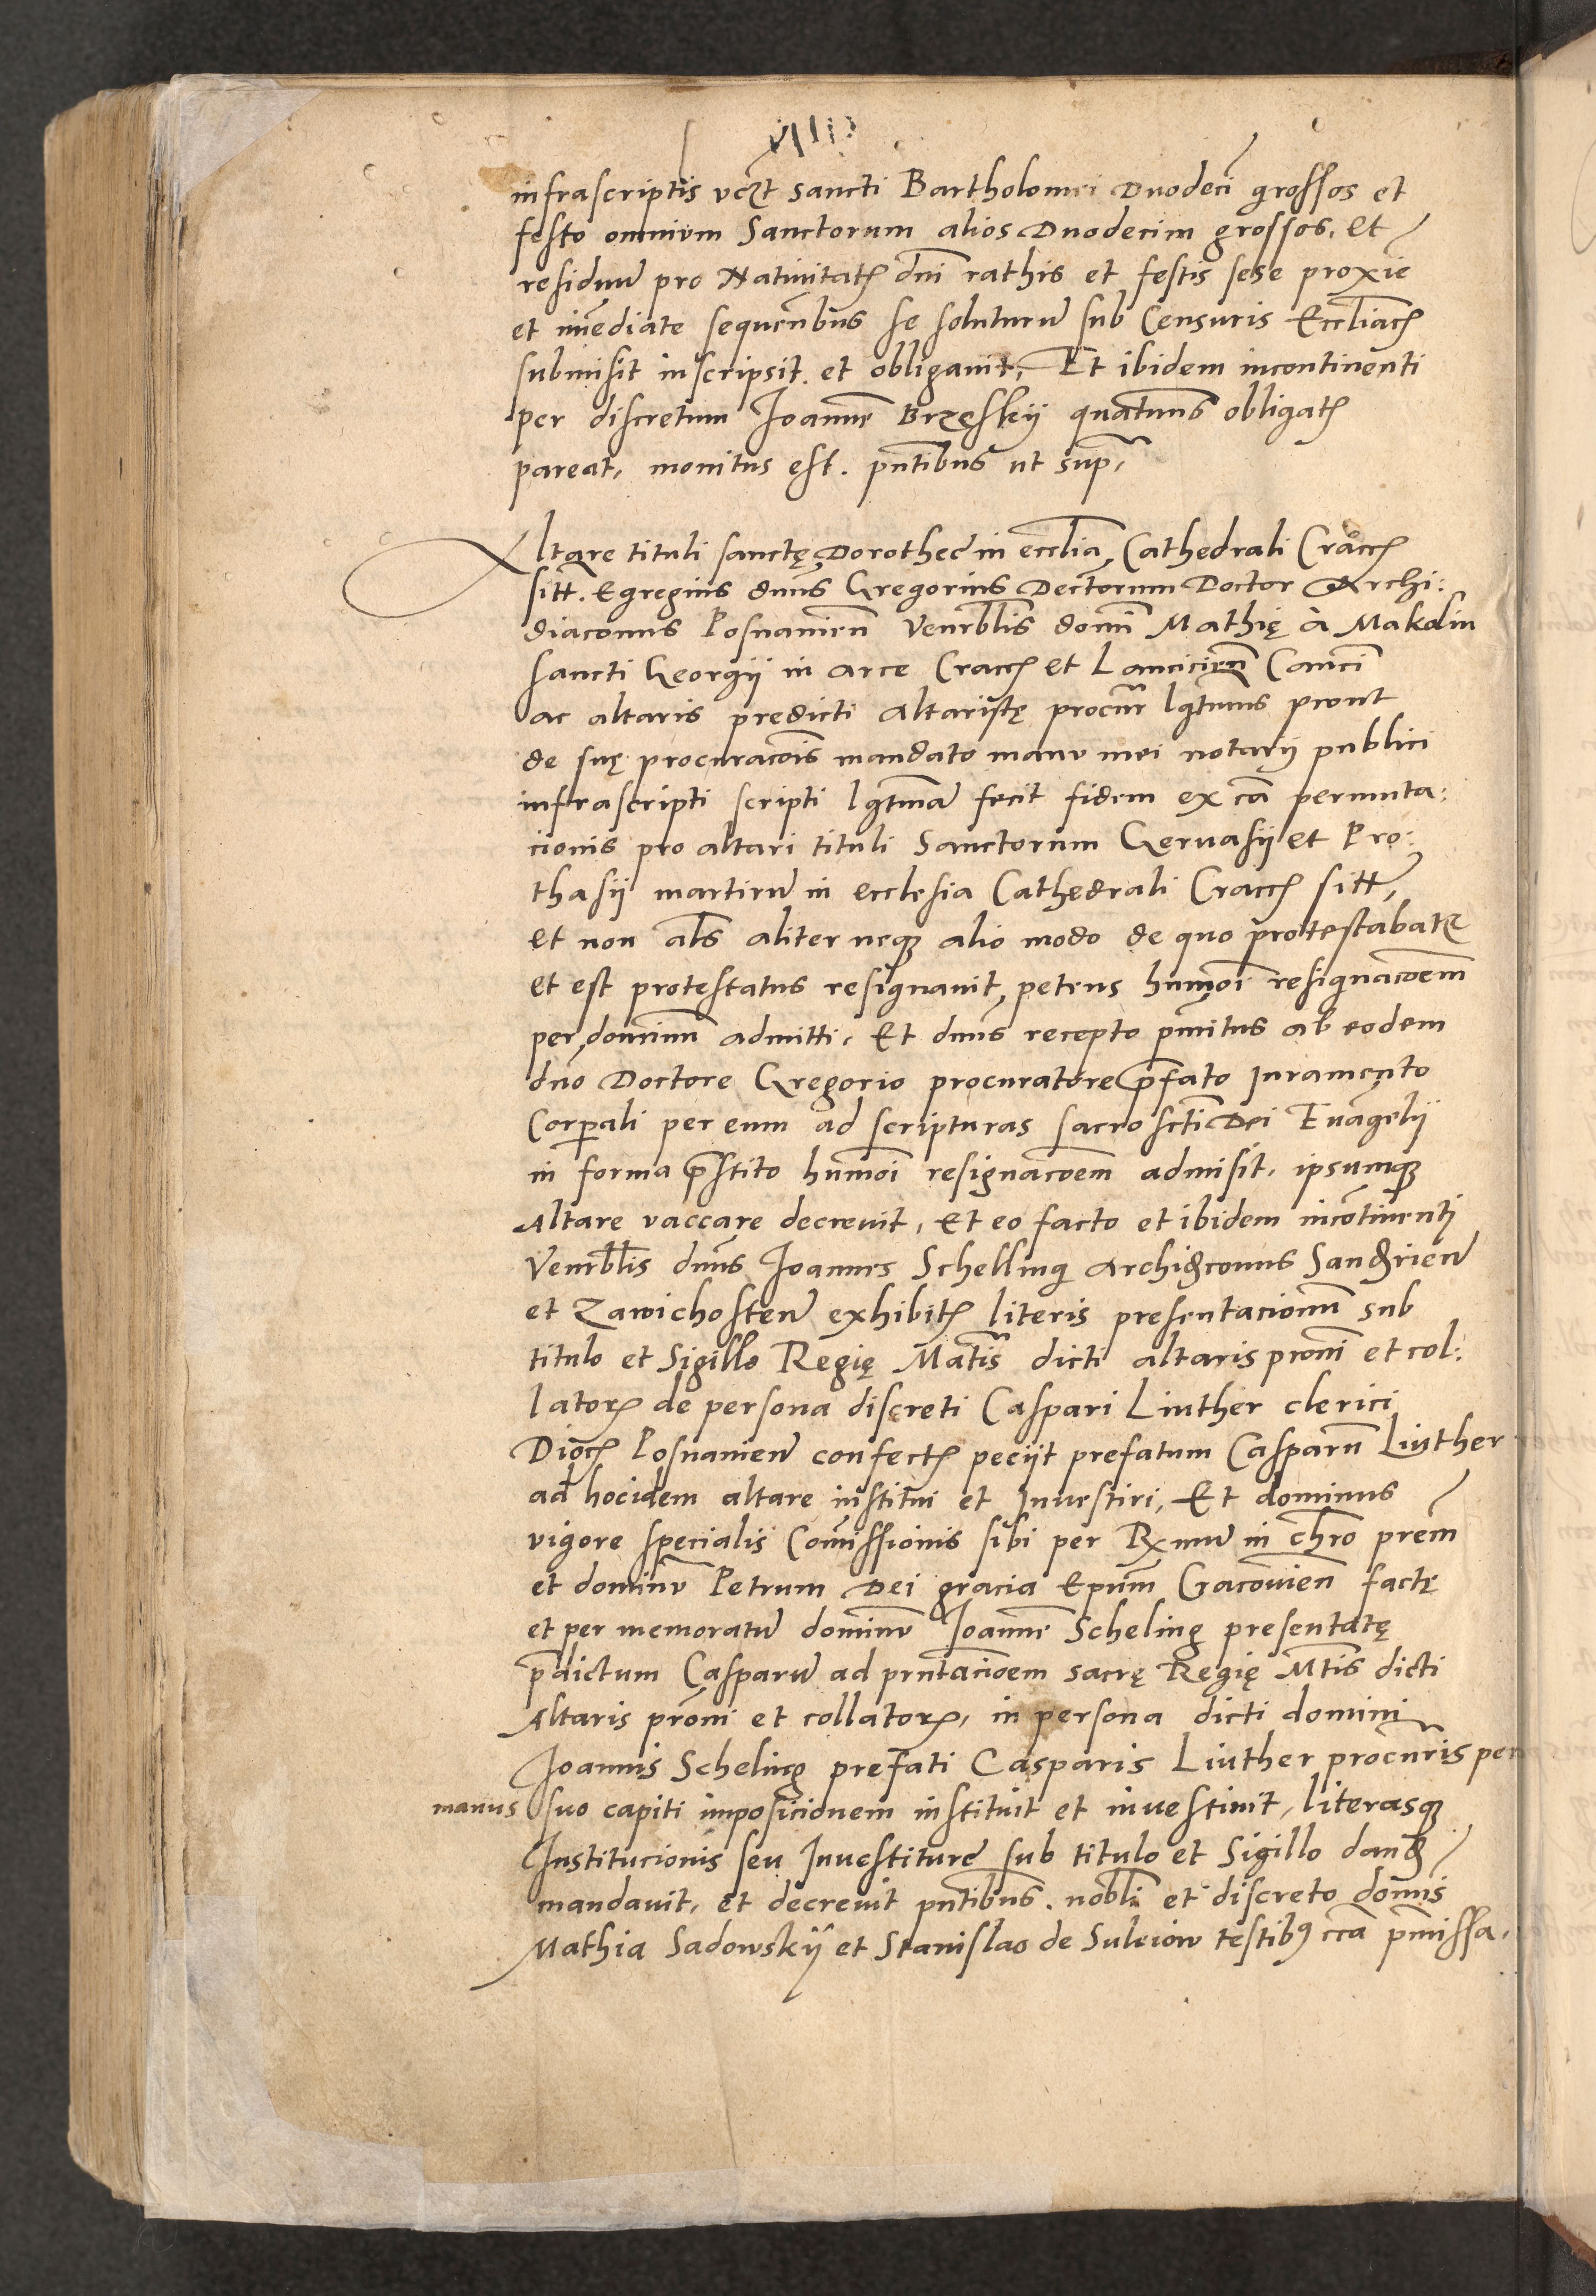 infrascriptis vcꝫt sancti Bartholomei Duodecī grossos et
festo omnium Sanctorum alios Duodecim grossos, et
residuū pro Natiuitatꝭ dnī rathis et festis sese proxiē
et im̄ediate sequen̄bus se soluturū sub Censuris Eccl̄iacꝭ
submisit inscripsit et obligauit, Et ibidem incontinenti
per discretum Joannē Brzeskij quat̄nus obligatꝭ
pareat, monitus est. pn̄tibus ut sup̄
Altare tituli sanctę Dorotheę in eccl̄ia Cathedrali Craccꝭ
sitt̄. Egregius dnūs Gregorius Decr̄torum Doctor Archi:
diaconus Posnanien̄ Venerbl̄is domī Mathię à Makolin
sancti Georgij in arce Craccꝭ et Lancicien̄ Cancī
ac altaris predicti Altaristę procur̄ lgt̄mus prout
de suę procuracōis mandato manu mei notarij publici
infrascripti scripti lgt̄mā fecit fidem ex cā permuta:
cionis pro altari tituli Sanctorum Geruasij et Pro:
thasij martirū in ecclesia Cathedrali Craccꝭ sitt̄,
et non al̄s aliter neqꝫ alio modo de quo protestabatꝛ
et est protestatus resignauit, petens humōi resignacōem
per dominum admitti, Et dnūs recepto pm̄itus ab eodem
dn̄o Doctore Gregorio procuratore p̄fato Juramento
Corꝑali per eum ad scripturas sacro sctī Dei Euāgelij
in forma p̄stito humōi resignacōem admisit, ipsumqꝫ
Altare vaccare decreuit, Et eo facto et ibidem incōtinenti
Venerbl̄is dnūs Joannes Schelling Archidꝫconus Sandꝫrien̄
et Zawichosten̄ exhibitꝭ literis presentacionum sub
titulo et Sigillo Regię Mat̄is dicti altaris pronī et col:
latorꝭ de persona discreti Caspari Linther clerici
Diocꝭ Posnanien̄ confectꝭ peciit prefatum Casparū Linther
ad hocidem altare institui et Inuestiri, Et dominus
vigore specialis Com̄issionis sibi per Rꝫmū in chr̄o prēm
et dominū Petrum Dei gracia Ep̄um Cracouien̄ factę
et per memoratū dominū Joannē Scheling presentatę
p̄dictum Casparū ad prn̄tacioem sacrę Regię Mt̄is dicti
Altaris pronī et collatorꝭ, in persona dicti domini
Joannis Scheling prefati Casparis Linther procur̄is per
manus suo capiti imposicionem instituit et inuestiuit, literasqꝫ
Institucionis seu Inuestiturę sub titulo et Sigillo dandꝫ
mandauit, et decreuit pn̄tibus. nobl̄i et discreto domīs
Mathia Sadowskij et Stanislao de Suleiow testibꝰ cc̄a pm̄issa.